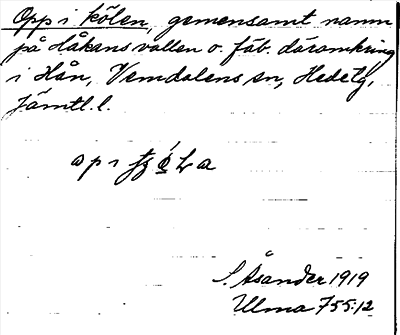 Opp i kölen, gemensamt namn
på Håkansvallen o. fäb. däromkring
i Hån, Vemdalens sn, Hedetg,
Jämtl. l.
S. Åsander 1919
Ulma 755:12